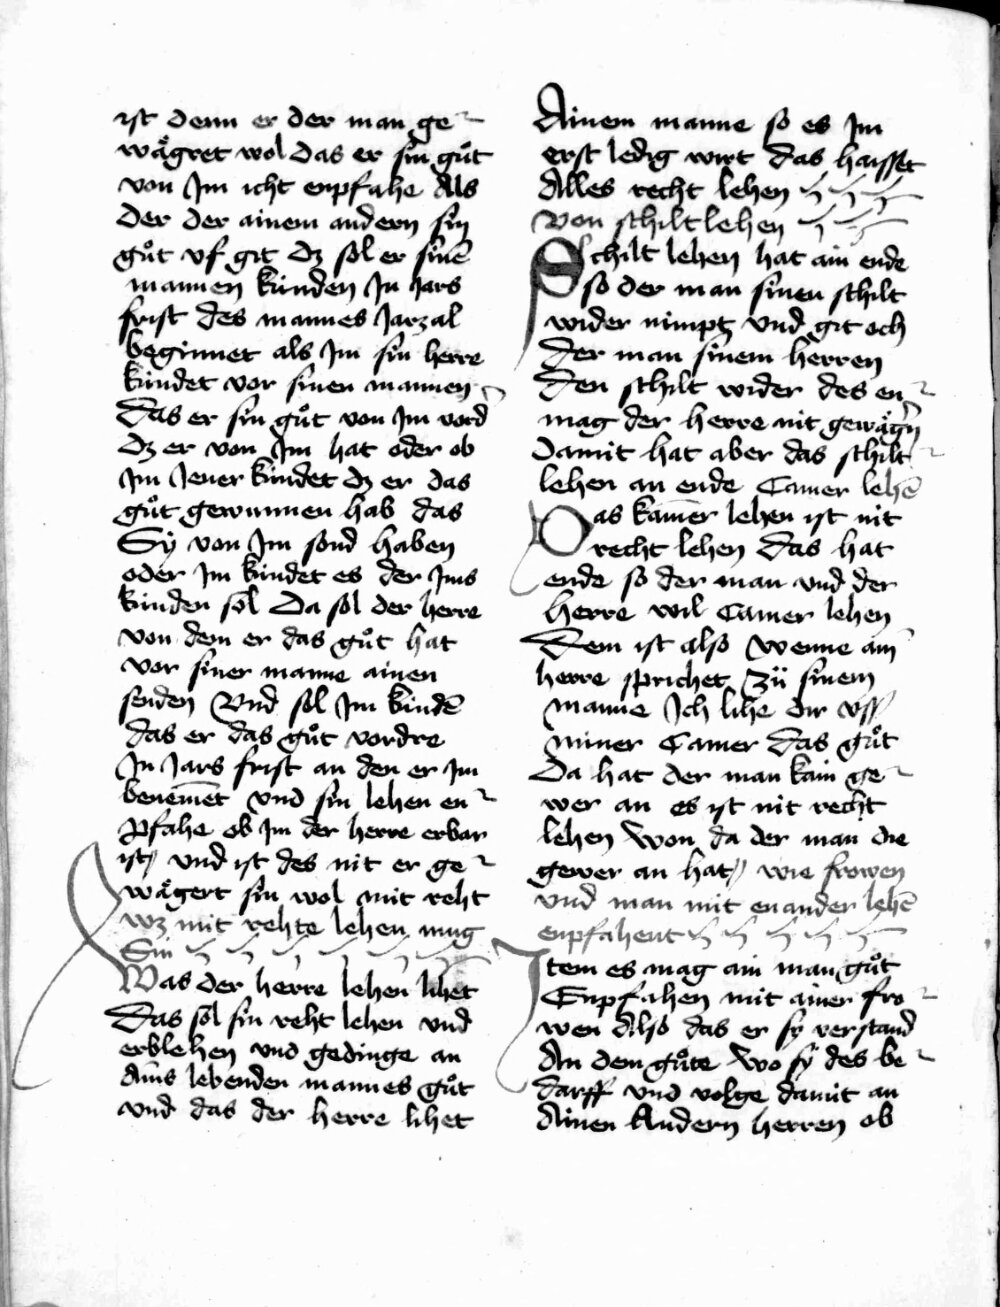 ist denn er der man ge¬
waͤgret wol das er sin guͦt
von Jm icht enpfahe Als
Der der ainem andern sin
guͦt vf git dz sol er sinē
mannen kúnden Jn Jars
frist des mannes Jarzal
beginnet als Jm sin herre
kúndet vor sinen mannen
Das er sin guͦt von Jm vord͛
dz er von Jm hat oder ob
Jm Jener kúndet dz er das
guͦt gewunnen hab das
Sÿ von Jm sond haben
oder Jm kúndet es der Jms
kúnden sol Da sol der herre
von dem er das guͦt hat
vor siner manne ainen
senden Vnd sol Jm kúndē
das er das guͦt vordre
Jn Jars frist an den er Jm
benēmet vnd sin lehen en¬
pfahe ob Jm der herre erbar
ist // vnd ist des nit er ge¬
waͤgert sin wol mit reht
wz mit rehte lehen mug
Sin
Was der herre lehen lihet
Das sol sin reht lehen vnd
erblehen vnd gedinge an
Ains lebenden mannes guͦt
vnd das der herre lihet
Ainem manne so es Jm
erst ledig wirt das haisset
Alles recht lehen
Von schiltlehen
Schilt lehen hat ain ende
so der man sinen schilt
wider nimpt vnd git och
der man sinem herren
Den schilt wider des en¬
mag der herre nit gewaͤgn̄
Damit hat aber das schilt¬
lehen an ende Camer lehē
Das kam̄er lehen ist nit
recht lehen Das hat
ende so der man vnd der
herre wil Camer lehen
Dem ist also Wenne ain
herre sprichet Zü sinem
manne Jch lihe dir vss
miner Camer Das guͦt
Da hat der man kain ge¬
wer an es ist nit recht
lehen Won da der man die
gewer an hat // wie frowen
vnd man mit enander lehē
enpfahent
Jtem es mag ain man guͦt
Enpfahen mit ainer fro¬
wen Also das er sÿ verstand
An dem guͦte Wo sÿ des be¬
darff vnd volge damit an
Ainen Andern herren ob